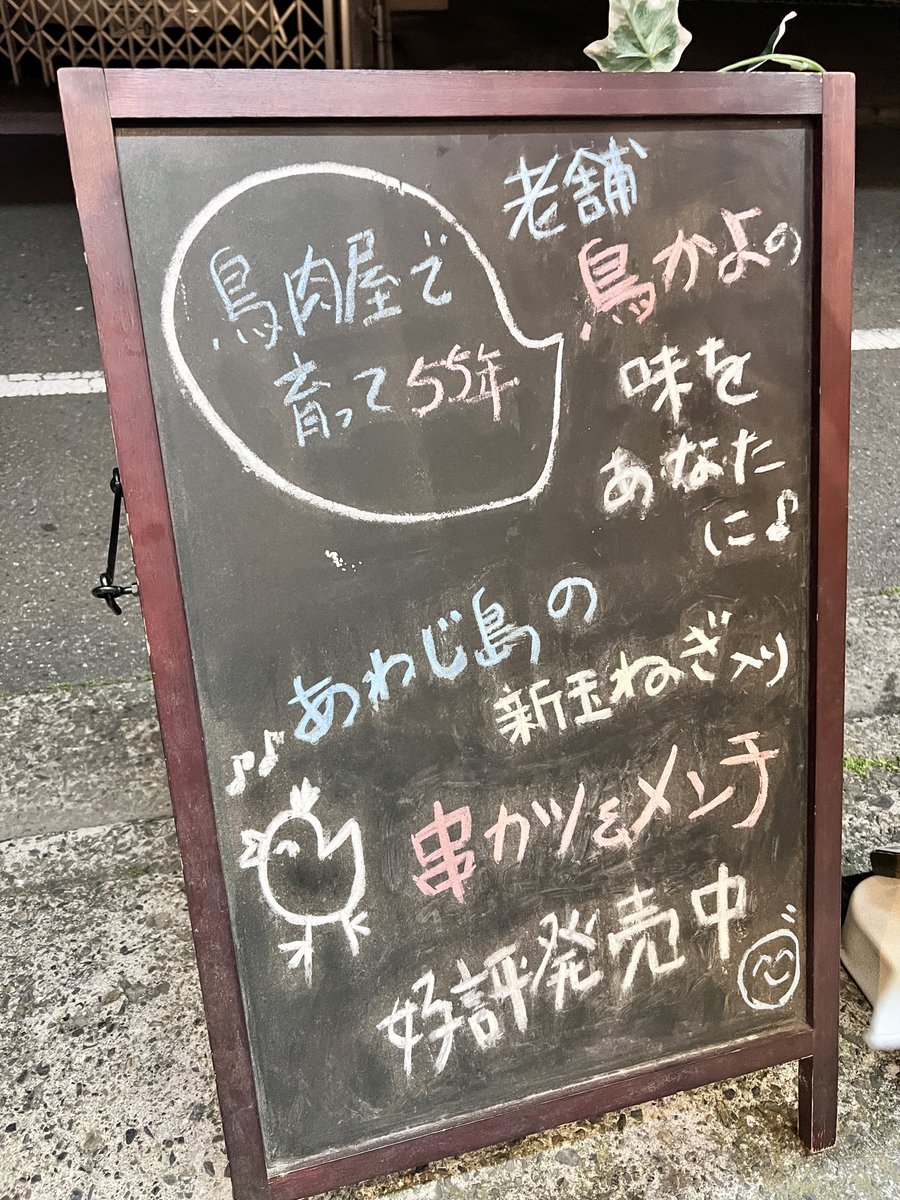 鳥肉屋で
育って55年
老舗
鳥かよの
味を
あなた
に♪
あわじ島の
新玉ねぎ入り
串カツ&メンチ
好評発売中